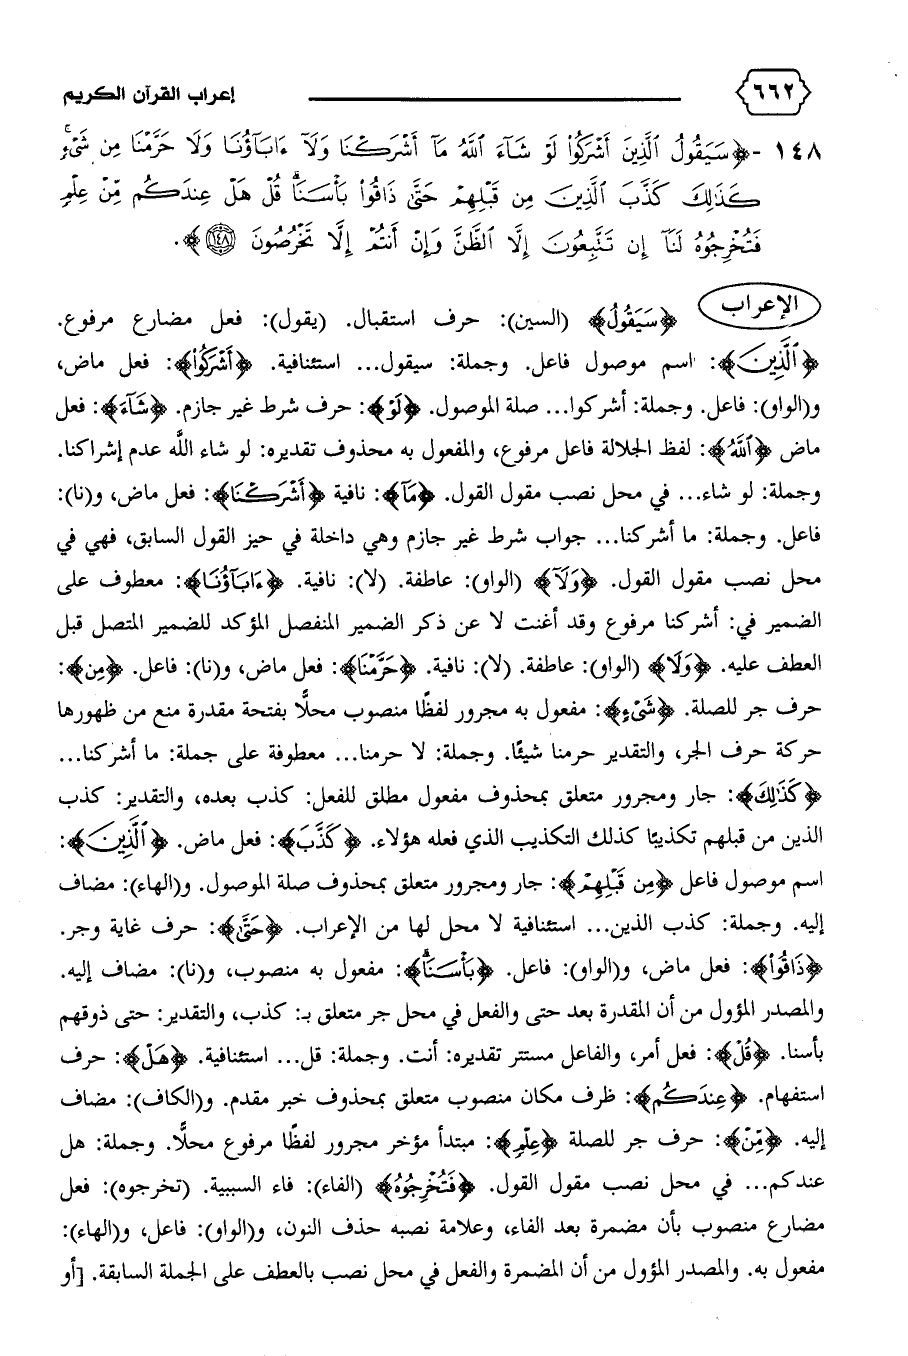 ٦٦٢ إعراب القرآن الكريم
١٤٨ - ﴿سَيَقُولُ ٱلَّذِينَ أَشْرَكُوا۟ لَوْ شَآءَ ٱللَّهُ مَآ أَشْرَكْنَا وَلَآ ءَابَآؤُنَا وَلَا حَرَّمْنَا مِن شَىْءٍۚ
كَذَٰلِكَ كَذَّبَ ٱلَّذِينَ مِن قَبْلِهِمْ حَتَّىٰ ذَاقُوا۟ بَأْسَنَاۗ قُلْ هَلْ عِندَكُم مِّنْ عِلْمٍ
فَتُخْرِجُوهُ لَنَآ إِن تَتَّبِعُونَ إِلَّا ٱلظَّنَّ وَإِنْ أَنتُمْ إِلَّا تَخْرُصُونَ ١٤٨﴾.
الإعراب ﴿سَيَقُولُ﴾ (السين): حرف استقبال. (يقول): فعل مضارع مرفوع.
﴿ٱلَّذِينَ﴾: اسم موصول فاعل. وجملة: سيقول... استئنافية. ﴿أَشْرَكُوا۟﴾: فعل ماض،
و(الواو): فاعل. وجملة: أشركوا... صلة الموصول. ﴿لَوْ﴾: حرف شرط غير جازم. ﴿شَآءَ﴾: فعل
ماض ﴿ٱللَّهُ﴾: لفظ الجلالة فاعل مرفوع، والمفعول به محذوف تقديره: لو شاء اللَّه عدم إشراكنا.
وجملة: لو شاء... في محل نصب مقول القول. ﴿مَآ﴾: نافية ﴿أَشْرَكْنَا﴾: فعل ماض، و(نا):
فاعل. وجملة: ما أشركنا... جواب شرط غير جازم وهي داخلة في حيز القول السابق، فهي في
محل نصب مقول القول. ﴿وَلَآ﴾ (الواو): عاطفة. (لا): نافية. ﴿ءَابَآؤُنَا﴾: معطوف على
الضمير في: أشركنا مرفوع وقد أغنت لا عن ذكر الضمير المنفصل المؤكد للضمير المتصل قبل
العطف عليه. ﴿وَلَا﴾ (الواو): عاطفة. (لا): نافية. ﴿حَرَّمْنَا﴾: فعل ماض، و(نا): فاعل. ﴿مِن﴾:
حرف جر للصلة. ﴿شَىْءٍ﴾: مفعول به مجرور لفظًا منصوب محلًّا بفتحة مقدرة منع من ظهورها
حركة حرف الجر، والتقدير حرمنا شيئًا. وجملة: لا حرمنا... معطوفة على جملة: ما أشركنا...
﴿كَذَٰلِكَ﴾: جار ومجرور متعلق بمحذوف مفعول مطلق للفعل: كذب بعده، والتقدير: كذب
الذين من قبلهم تكذيبًا كذلك التكذيب الذي فعله هؤلاء. ﴿كَذَّبَ﴾: فعل ماض. ﴿ٱلَّذِينَ﴾:
اسم موصول فاعل ﴿مِن قَبْلِهِمْ﴾: جار ومجرور متعلق بمحذوف صلة الموصول. و(الهاء): مضاف
إليه. وجملة: كذب الذين... استئنافية لا محل لها من الإعراب. ﴿حَتَّىٰ﴾: حرف غاية وجر.
﴿ذَاقُوا۟﴾: فعل ماض، و(الواو): فاعل. ﴿بَأْسَنَاۗ﴾: مفعول به منصوب، و(نا): مضاف إليه.
والمصدر المؤول من أن المقدرة بعد حتى والفعل في محل جر متعلق بـ: كذب، والتقدير: حتى ذوقهم
بأسنا. ﴿قُلْ﴾: فعل أمر، والفاعل مستتر تقديره: أنت. وجملة: قل... استئنافية. ﴿هَلْ﴾: حرف
استفهام. ﴿عِندَكُم﴾: ظرف مكان منصوب متعلق بمحذوف خبر مقدم. و(الكاف): مضاف
إليه. ﴿مِّنْ﴾: حرف جر للصلة ﴿عِلْمٍ﴾: مبتدأ مؤخر مجرور لفظًا مرفوع محلًّا. وجملة: هل
عندكم... في محل نصب مقول القول. ﴿فَتُخْرِجُوهُ﴾ (الفاء): فاء السببية. (تخرجوه): فعل
مضارع منصوب بأن مضمرة بعد الفاء، وعلامة نصبه حذف النون، و(الواو): فاعل، و(الهاء):
مفعول به. والمصدر المؤول من أن المضمرة والفعل في محل نصب بالعطف على الجملة السابقة. [أو